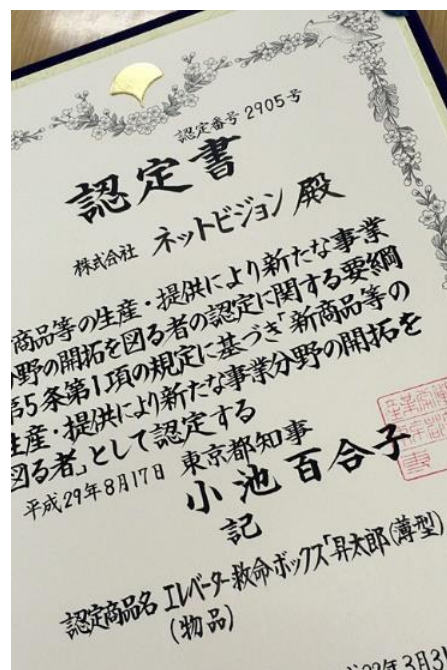 認定番号 2905号
認定書
株式会社 ネットビジョン 殿
商品等の生産・提供により新たな事業
分野の開拓を図る者の認定に関する要綱
第5条第1項の規定に基づき「新商品等の
生産・提供により新たな事業分野の開拓を
図る者」として認定する
平成29年8月17日 東京都知事
小池百合子
記
認定商品名 エレベーター救命ボックス「昇太郎(薄型)
(物品)
年3月3